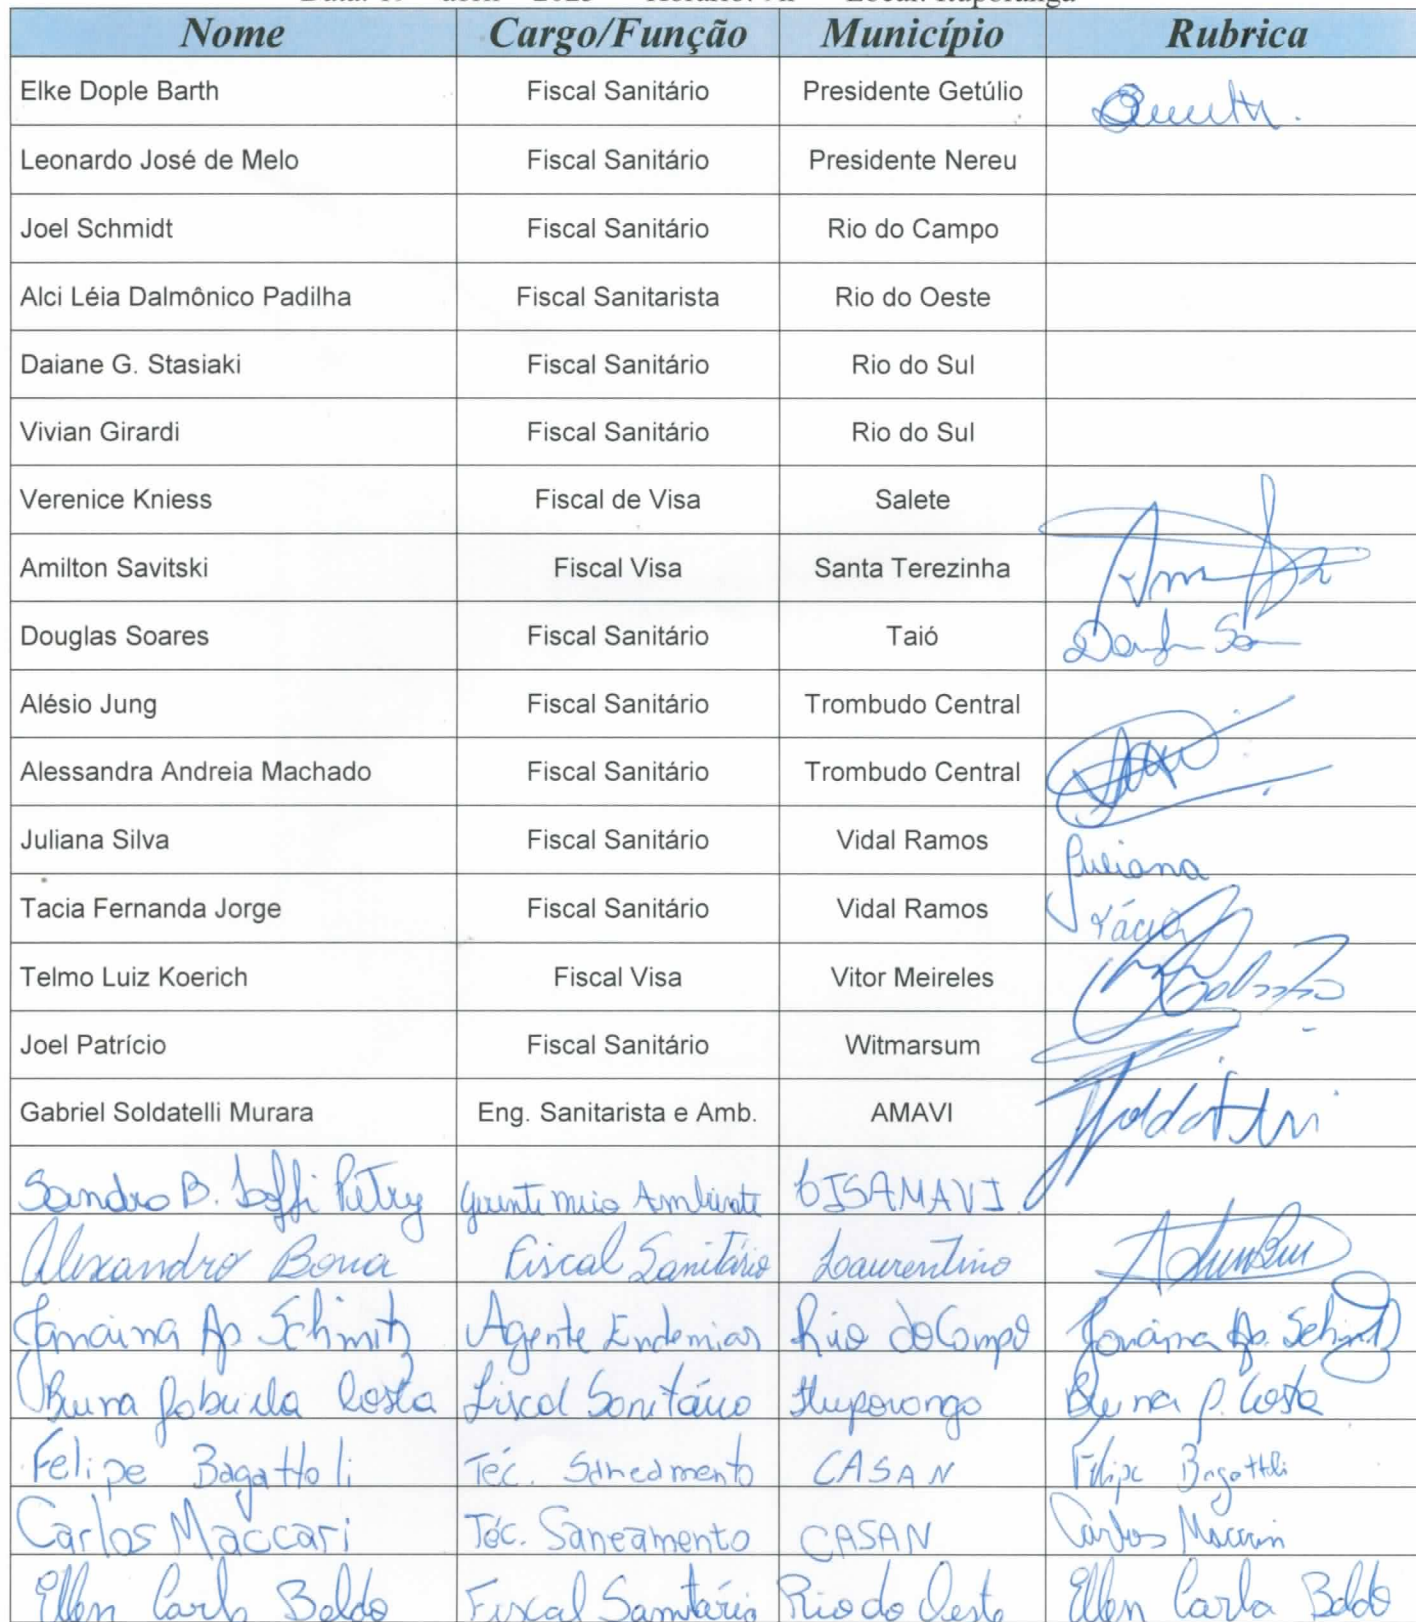 Nome Cargo/Função Município Rubrica
Elke Dople Barth Fiscal Sanitário Presidente Getúlio
Leonardo José de Melo Fiscal Sanitário Presidente Nereu
Joel Schmidt Fiscal Sanitário Rio do Campo
Alci Léia Dalmônico Padilha Fiscal Sanitarista Rio do Oeste
Daiane G. Stasiaki Fiscal Sanitário Rio do Sul
Vivian Girardi Fiscal Sanitário Rio do Sul
Verenice Kniess Fiscal de Visa Salete
Amilton Savitski Fiscal Visa Santa Terezinha
Douglas Soares Fiscal Sanitário Taió
Alésio Jung Fiscal Sanitário Trombudo Central
Alessandra Andreia Machado Fiscal Sanitário Trombudo Central
Juliana Silva Fiscal Sanitário Vidal Ramos Juliana
Tacia Fernanda Jorge Fiscal Sanitário Vidal Ramos Tácia
Telmo Luiz Koerich Fiscal Visa Vitor Meireles
Joel Patrício Fiscal Sanitário Witmarsum
Gabriel Soldatelli Murara Eng. Sanitarista e Amb. AMAVI
Sandro B. Petry Gerente Meio Ambiente CISAMAVI
Alexandro Bona Fiscal Sanitário Laurentino
Janaina Ap Schmitz Agente Endemias Rio do Campo Janaina Ap. Schmitz
Bruna Costa Fiscal Sanitário Ituporanga Bruna P. Costa
Felipe Bagattoli Téc. Saneamento CASAN Felipe Bagattoli
Carlos Maccari Téc. Saneamento CASAN Carlos Maccari
Ellen Carla Boldo Fiscal Sanitário Rio do Oeste Ellen Carla Boldo